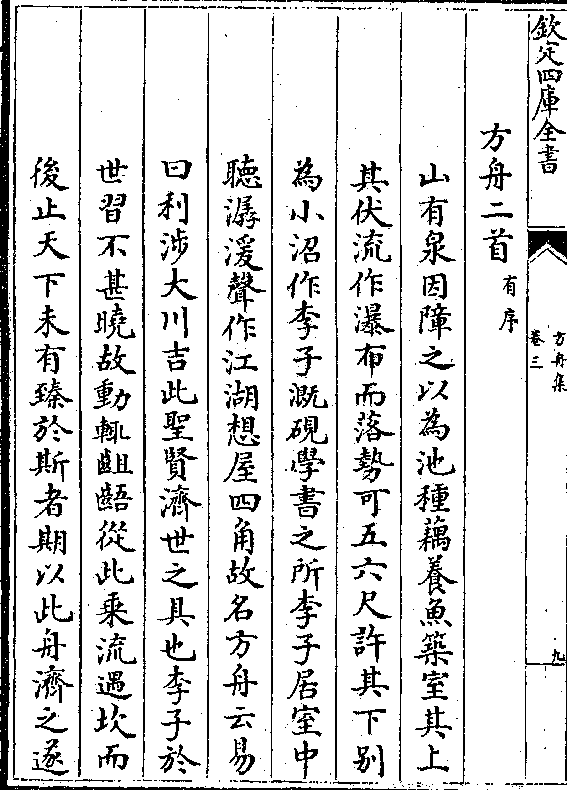 欽定四庫全書
方舟集
卷三
九
方舟二首有序
山有泉因障之以為池種藕養魚築室其上
其伏流作瀑布而落勢可五六尺許其下别
為小沼作李子溉硯學書之所李子居室中
聴潺湲聲作江湖想屋四角故名方舟云易
曰利涉大川吉此聖賢濟世之具也李子於
世習不甚曉故動輒齟齬從此乗流遇坎而
後止天下未有臻於斯者期以此舟濟之遂